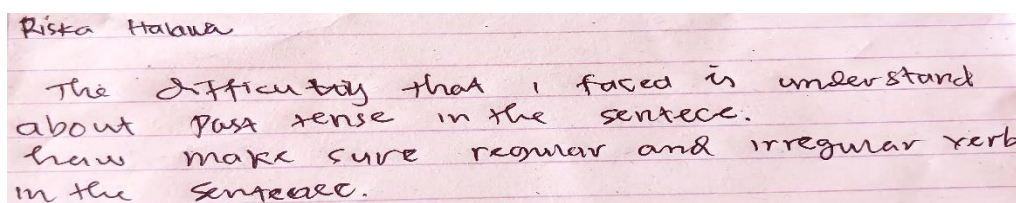 Riska Halawa
The difficulty that i faced is understand
about past tense in the sentece.
haw make sure regular and irregular verb
in the sentence.